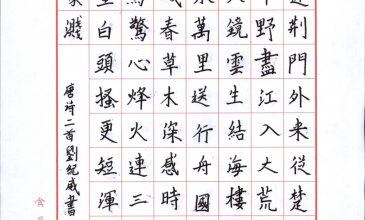 荊門外来從楚
野盡江入大荒
鏡雲生結海樓
萬里送行舟國
春草木深感時
驚心烽火連三
白頭搔更短渾
濺
唐詩二首劉紀威書